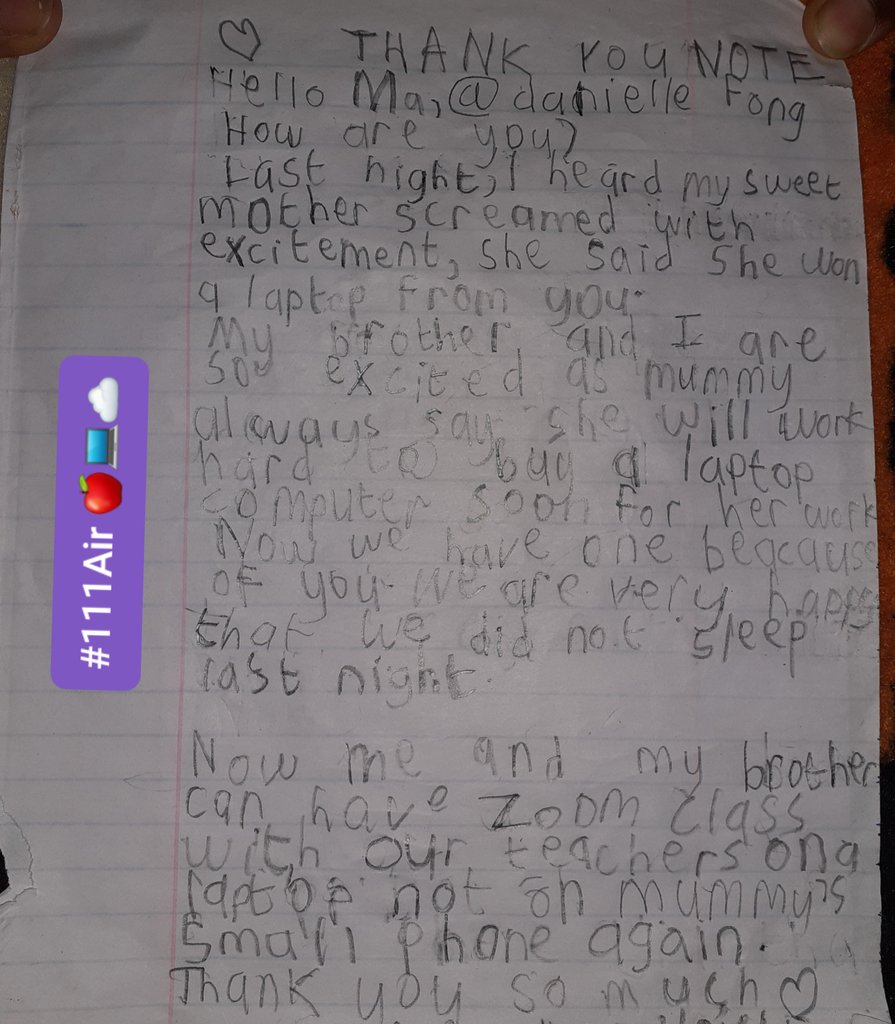 ♡ THANK YOU NOTE
Hello Ma, @danielle Fong
How are you?
Last night, I heard my sweet
mother screamed with
excitement, she said she won
a laptop from you.
My brother and I are
so excited as mummy
always say she will work
hard to buy a laptop
computer soon for her work
Now we have one begacause
of you. We are very happy
that we did not sleep
last night.
Now me and my brother
can have zoom class
with our teachers on a
laptop not on mummy's
small phone again.
Thank you so much ♡
#111Air 🍎💻☁️